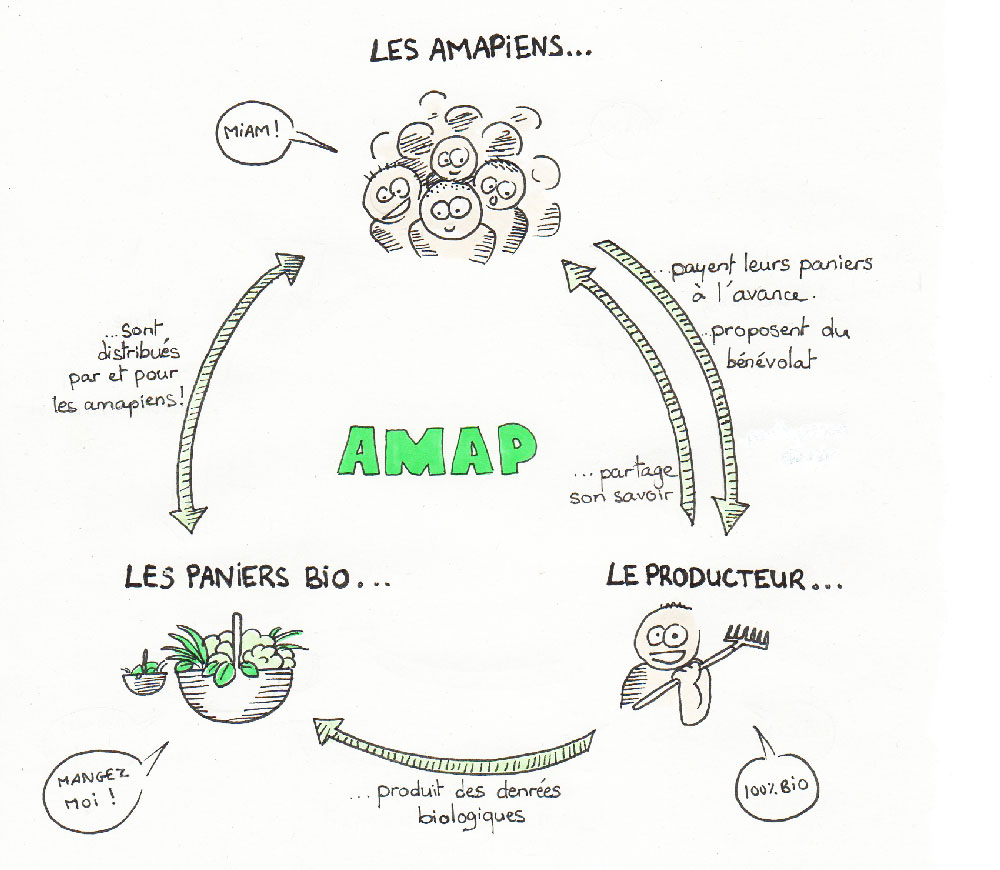 LES AMAPiENS...
MiAM !
...payent leurs paniers
à l'avance.
...proposent du
bénévolat
...sont
distribués
par et pour
les amapiens!
AMAP
...partage
son savoir
LES PANIERS BiO...
LE PRODUCTEUR...
MANGEZ
MOi !
100% BiO
...produit des denrées
biologiques